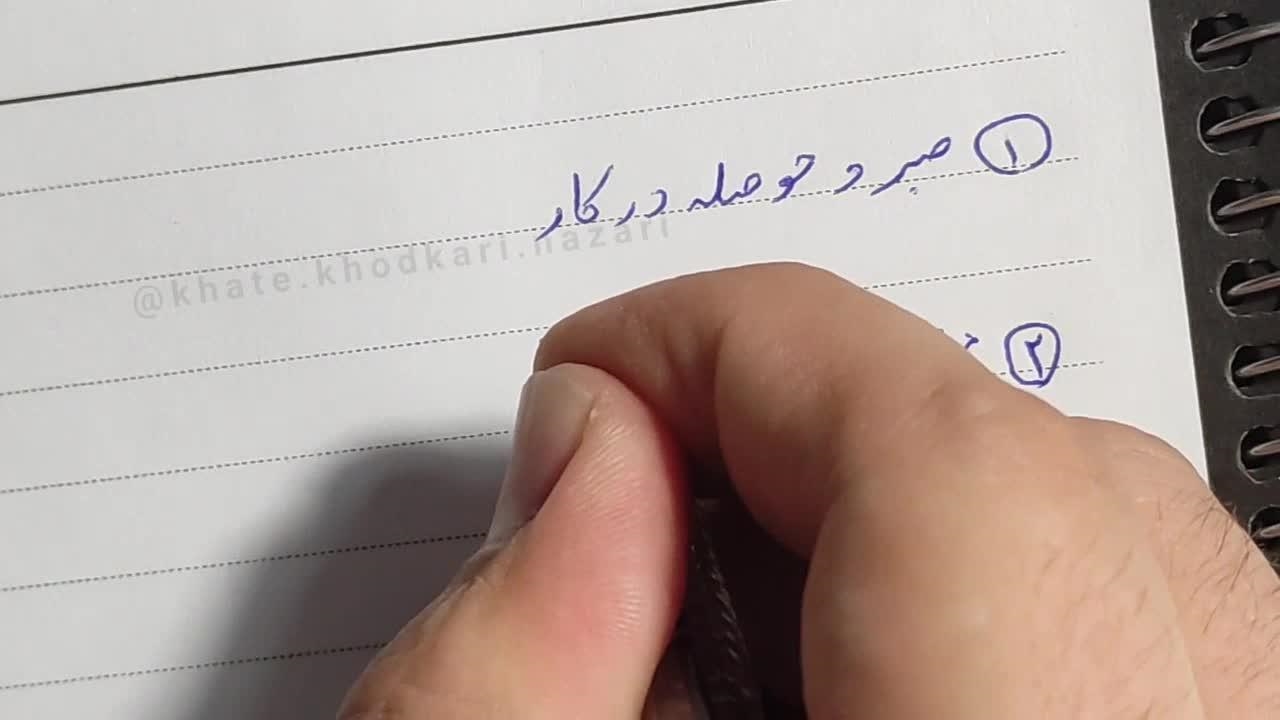 ۱ صبر و حوصله در کار
@khate.khodkari.nazari
۲